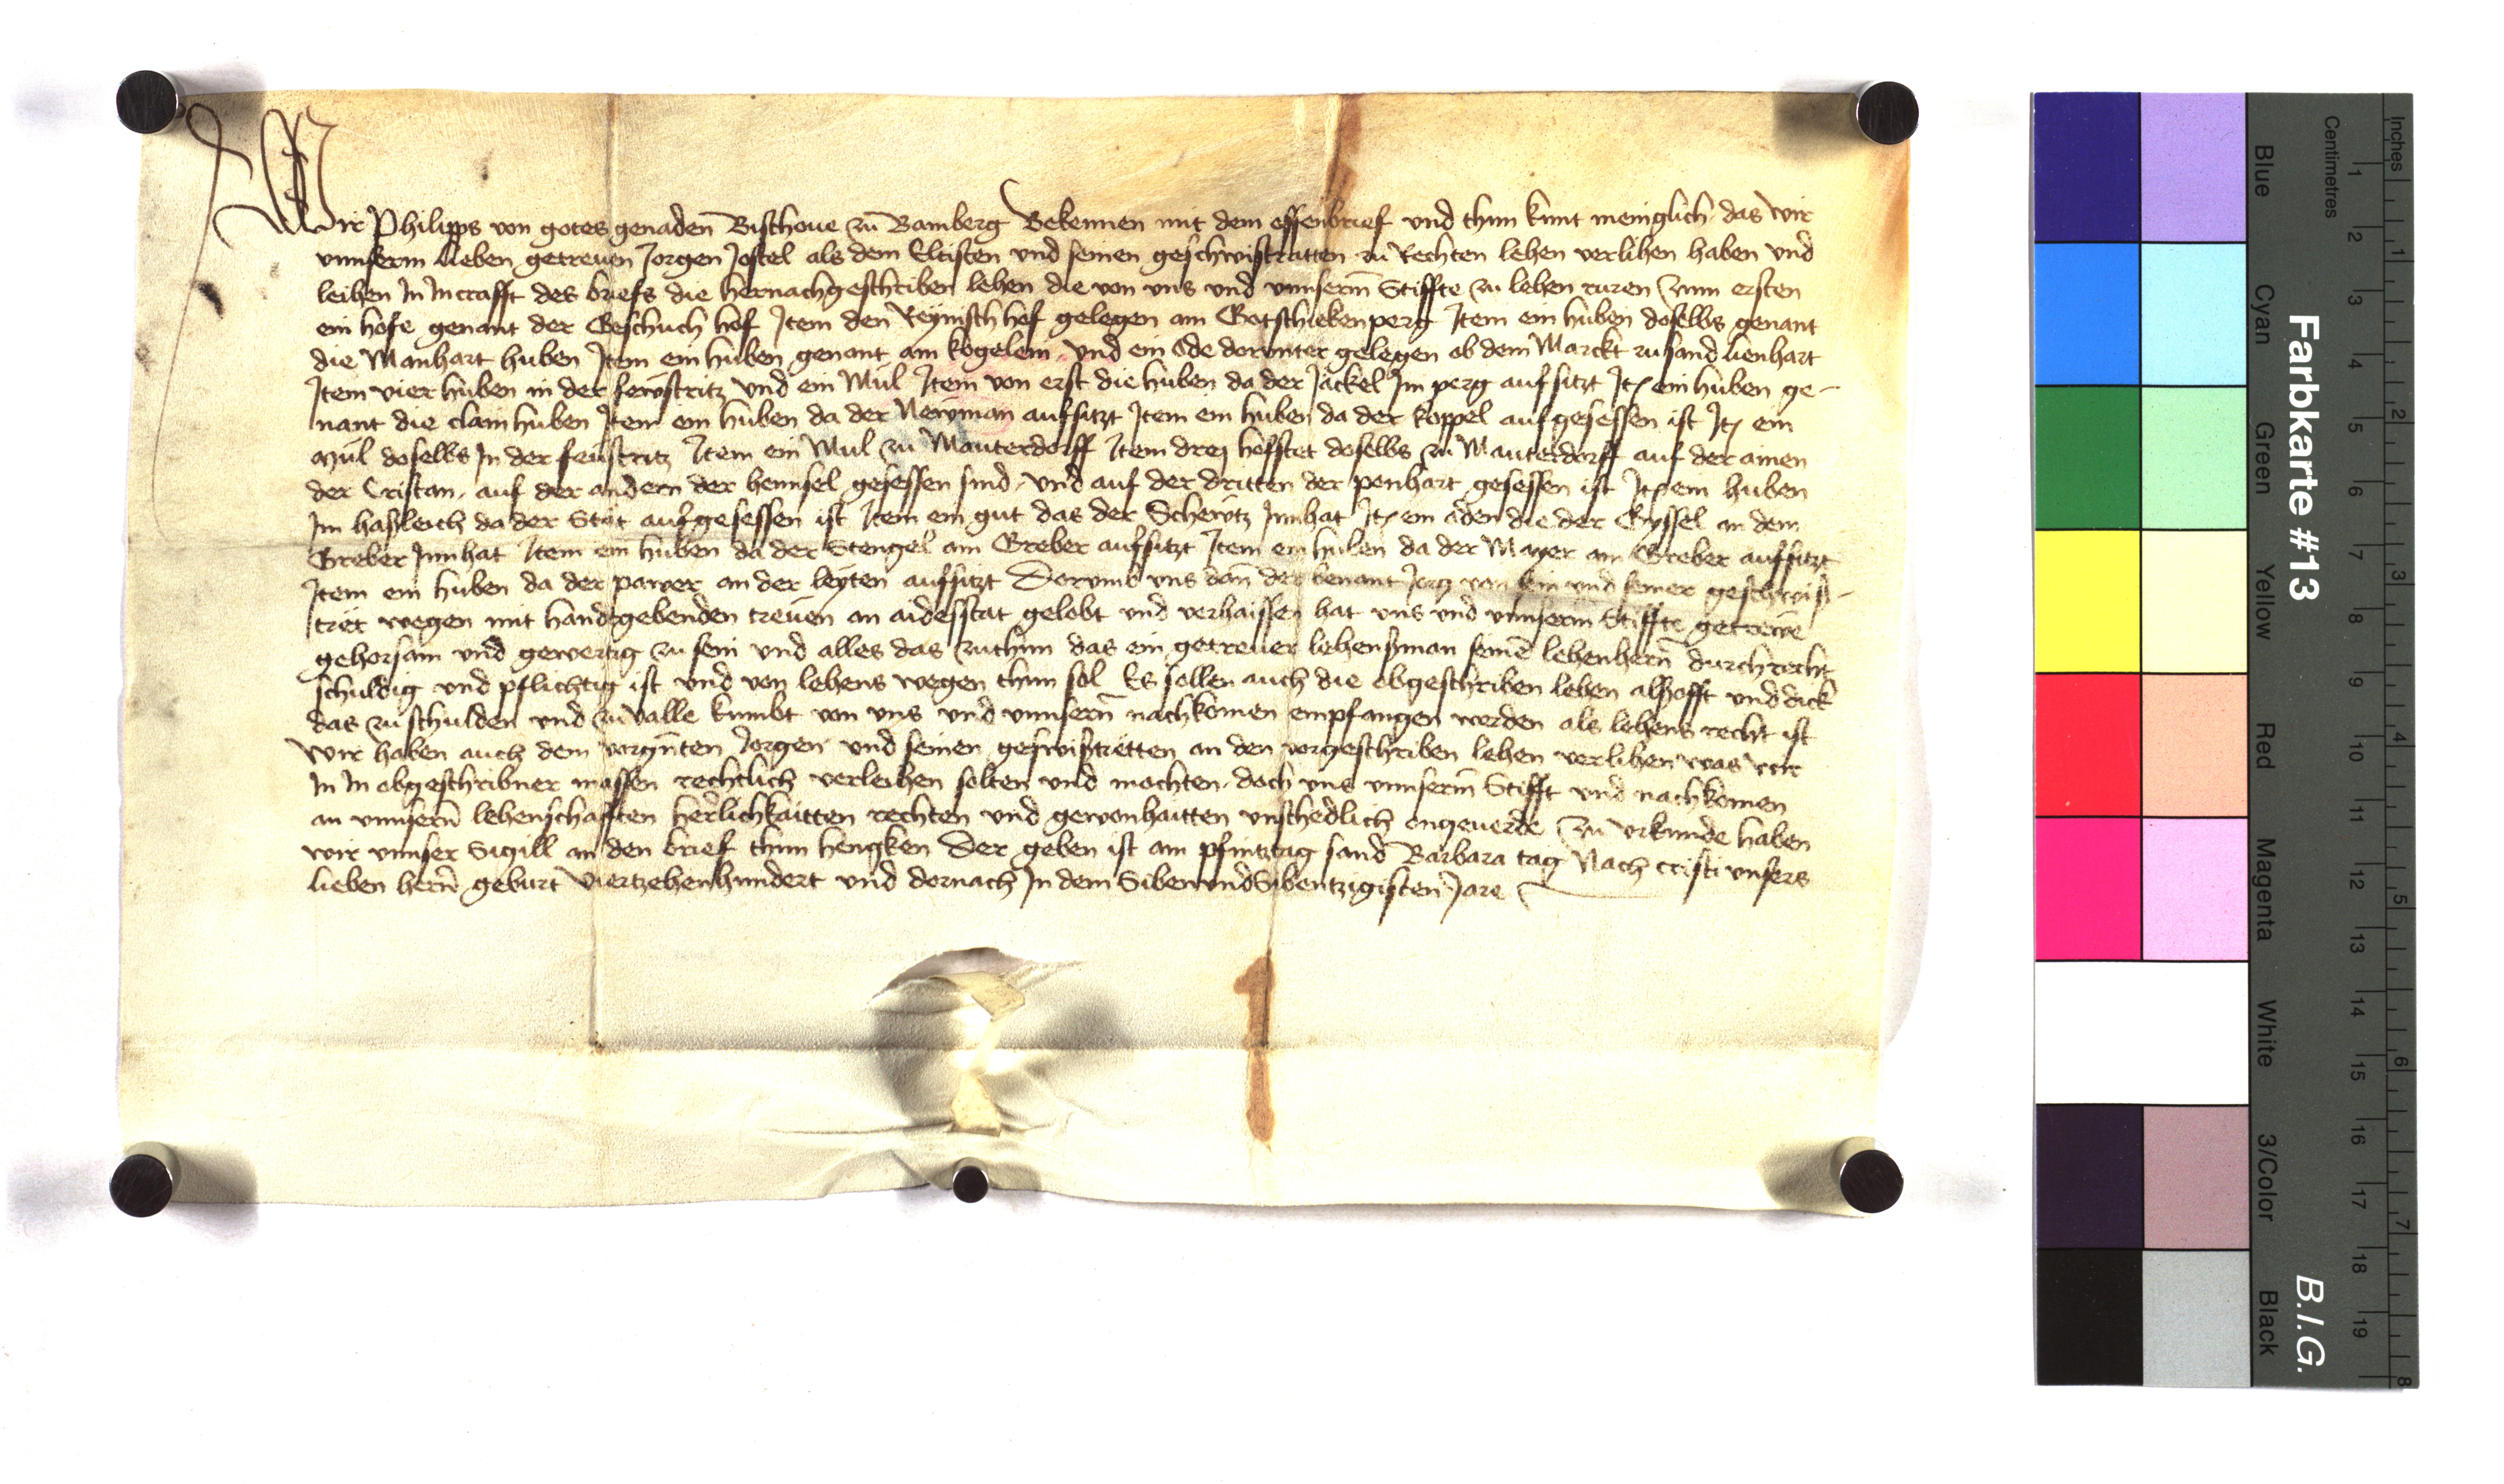 Wir Philipps von gotes genaden Bischoue zu Bamberg Bekennen mit dem offenbrief und thun kunt meniglich das wir
unnserm lieben getreuen Jorgen Jostel als dem Eltisten und seinen geschwistratten zu Rechten lehen verlihen haben und
leihen In Incrafft des briefs die hernachgeschriben lehen die von uns und unnserm Stiffte zu lehen ruren Zum ersten
ein hofe genant der Geschuch hof Item den Reyinsch hof gelegen am Gotschickenperg Item ein huben doselbs genant
die Manhart huben Item ein huben genant am kogelein und ein Ode dorunter gelegen ob dem Marckt zu sand lienhart
Item vier huben in der fewstritz und ein Mul Item von erst die huben da der Jackel Im perg auf sitzt Itẽ ein huben ge-
nant die clain huben Item ein huben da der Newman aufsitzt Item ein huben da der koppel auf gesessen ist Itẽ ein
Mul doselbs In der feustritz Item ein Mul zu Mauterdorff Item drej hofstet doselbs zu Mauterdorff auf der ainen
der Cristan, auf der andern der hennsel gesessen sind, und auf der dritten der penhart gesessen ist Itẽ ein huben
Im hasleich da der Stot aufgesessen ist Item ein gut das der Schewtz Innhat Itẽ ein oden die der Gyssel an dem
Greber Innhat Item ein huben da der Stengel am Greber aufsitzt Item ein huben da der Mayer am Greber aufsitzt
Item ein huben da der pawer an der leyten aufsitzt Dorumb uns dan der benant Jorg von sein und seiner geschwis-
tret wegen mit handtgebenden treuen an aidesstat gelobt und verhaissen hat uns und unnserm Stiffte getrewe
gehorsam und gewertig zu sein und alles das zuthun das ein getreuer lehensman seinẽ lehenhern durch recht
schuldig und pflichtig ist und von lehens wegen thun sol Es sollen auch die obgeschriben lehen alsofft und dick
das zu schulden und zu valle kumbt von uns und unnsern nachkomen empfangen werden als lehens recht ist
Wir haben auch dem vorgnten Jorgen und seinen geswistretten an den vorgeschriben lehen verlihen was wir
In In obgeschribner massen rechtlich verleihen solten und mochten, doch uns unnserm Stifft und nachkomen
an unnsern lehenschafften herlichkaitten rechten und gewonhaitten unschedlich ongeuerde Zu urkunde haben
wir unnser Sigill an den brief thun hengken Der geben ist am pfintztag sand Barbara tag Nach cristi unsers
lieben hern geburt Viertzehenhundert und dornach In dem Siben und Sibentzigisten Jare
Farbkarte #13
B.I.G.
Centimetres
Inches
Blue
Cyan
Green
Yellow
Red
Magenta
White
3/Color
Black
1 2 3 4 5 6 7 8 9 10 11 12 13 14 15 16 17 18 19
1 2 3 4 5 6 7 8